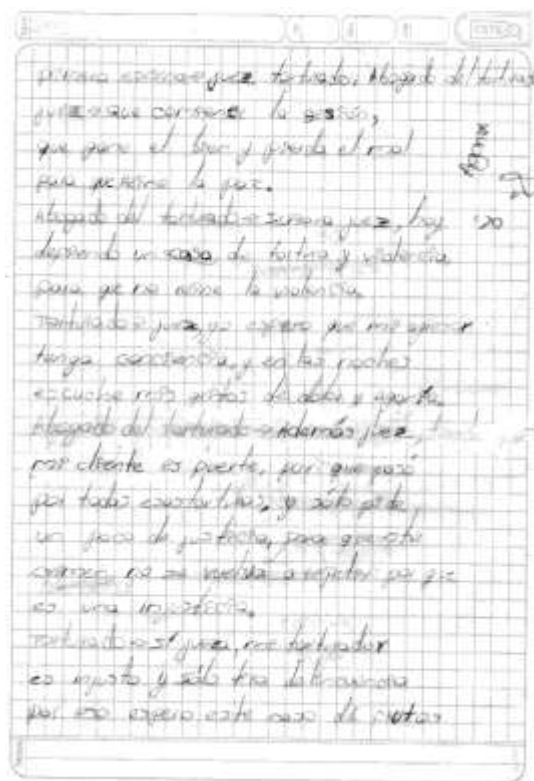 primera escena juez, torturado, Abogado del
juez que comience la sesión,
que gane el bien y pierda el mal
para la paz.
Abogado del torturado señora juez, hoy
defiendo un caso de tortura y violencia
para que no reine la violencia.
Torturado juez, yo espero que mi agresor
tenga conciencia, y en las noches
escuche mis gritos de dolor y agonía.
Abogado del torturado Además juez,
mi cliente es fuerte, por que pasó
por todas y sólo pide,
un poco de justicia, para que este
crimen no se vuelva a repetir por que
es una injusticia.
Torturado sí jueza, mi torturador
es injusto y sólo
por eso espero este caso dé frutos